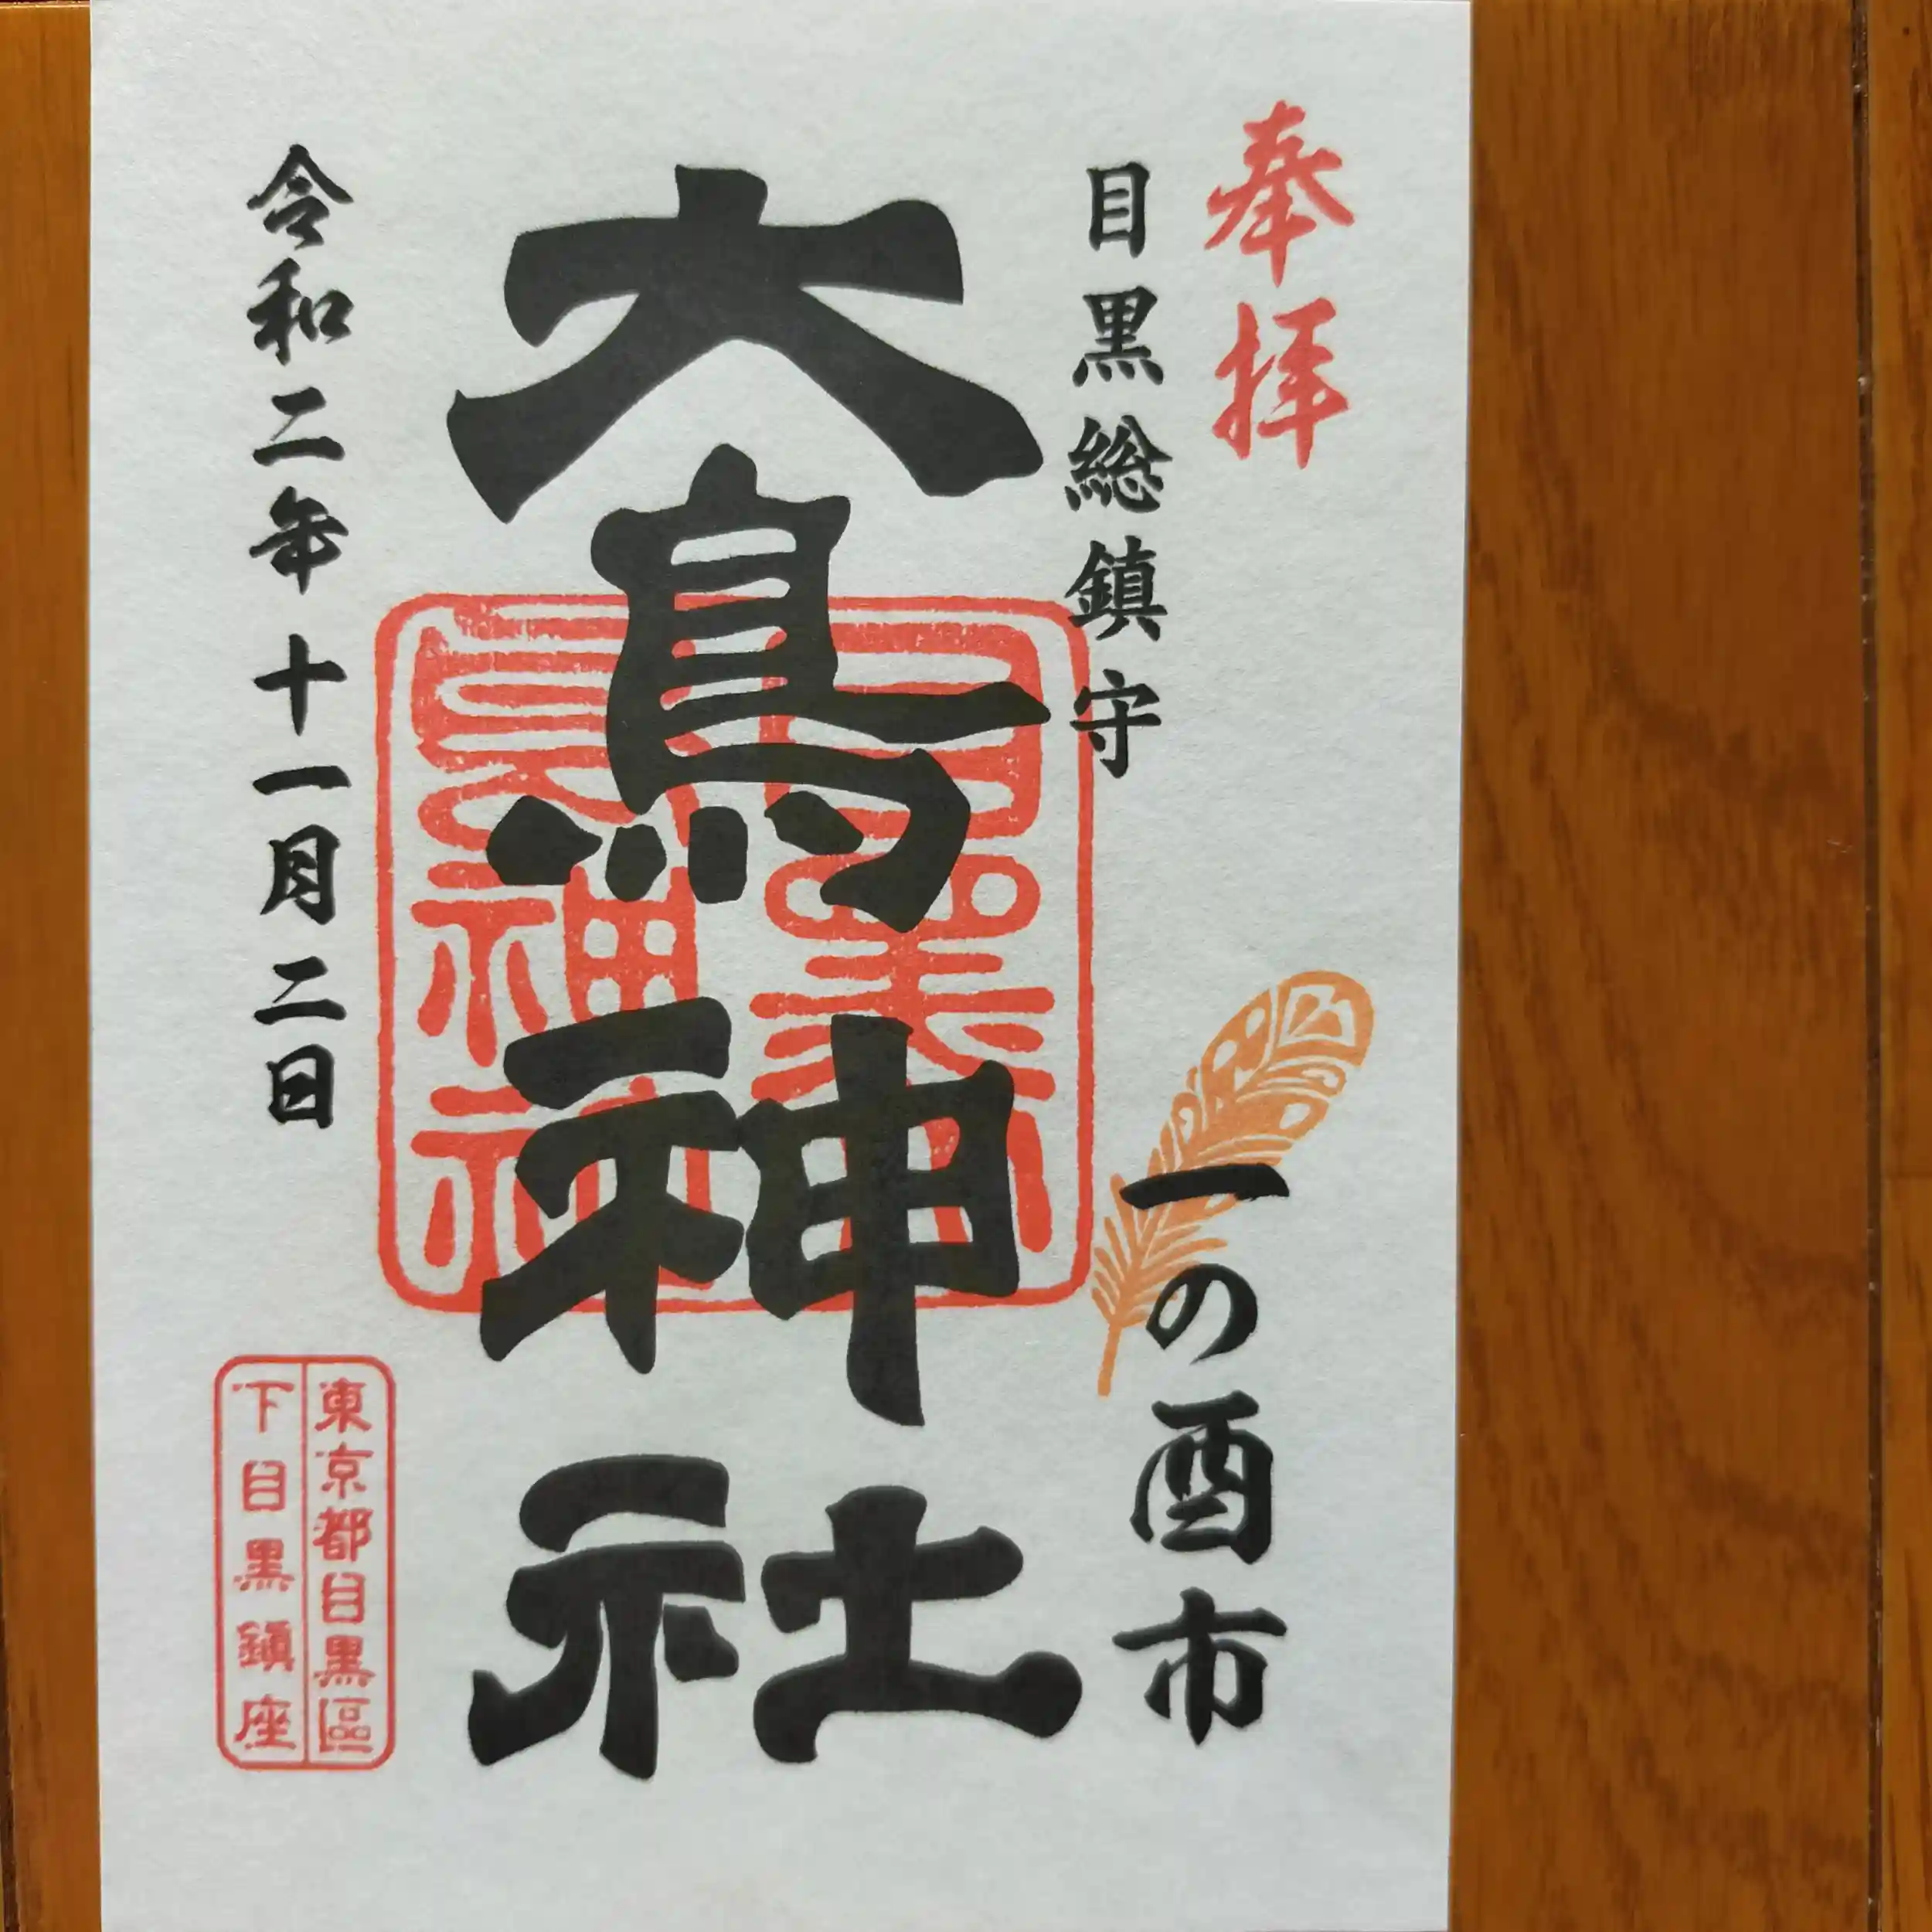 奉拝
目黒総鎮守
一の酉市
大鳥神社
令和二年十一月二日
東京都目黒區
下目黒鎮座